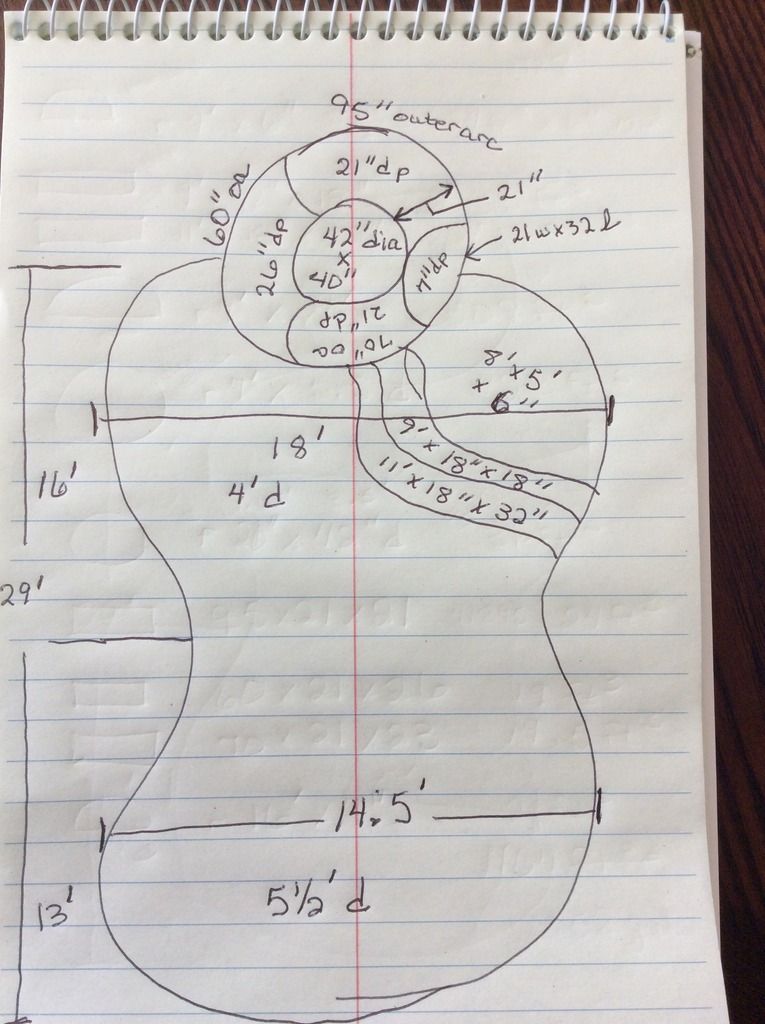 95" outer arc
21" dp
21"
60" oa
21w x 32 l
26" dp
42" dia
x
40"
7" dp
21" dp
70" oa
8' x 5'
x 6"
18'
9' x 18" x 18"
11' x 18" x 32"
4' d
16'
29'
14.5'
5 1/2' d
13'